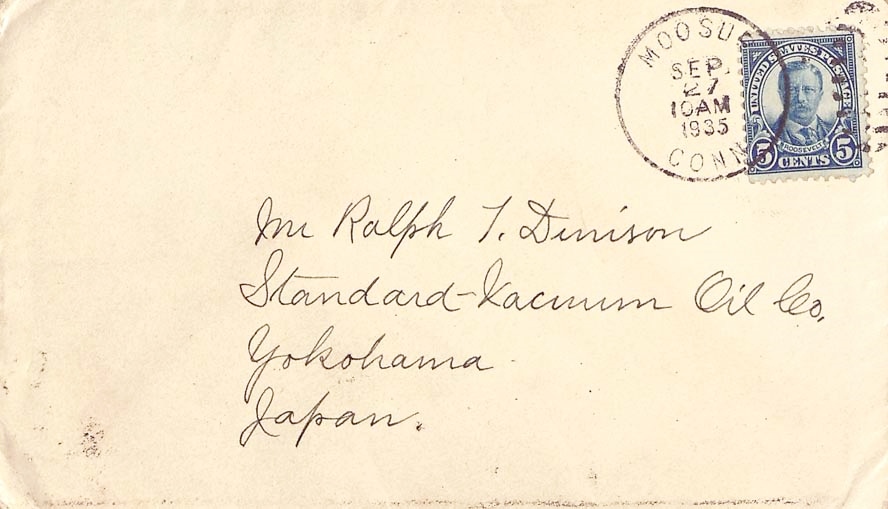 MOOSUP
SEP
27
10AM
1935
CONN
UNITED STATES POSTAGE
ROOSEVELT
5 CENTS 5
Mr Ralph T. Denison
Standard-Vacuum Oil Co,
Yokohama
Japan.